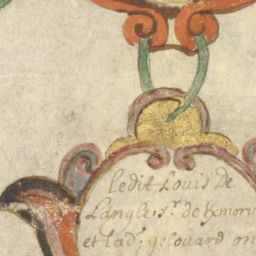 ledit Louis de
Langle sr. de Kmorv
et lad. gelouard on